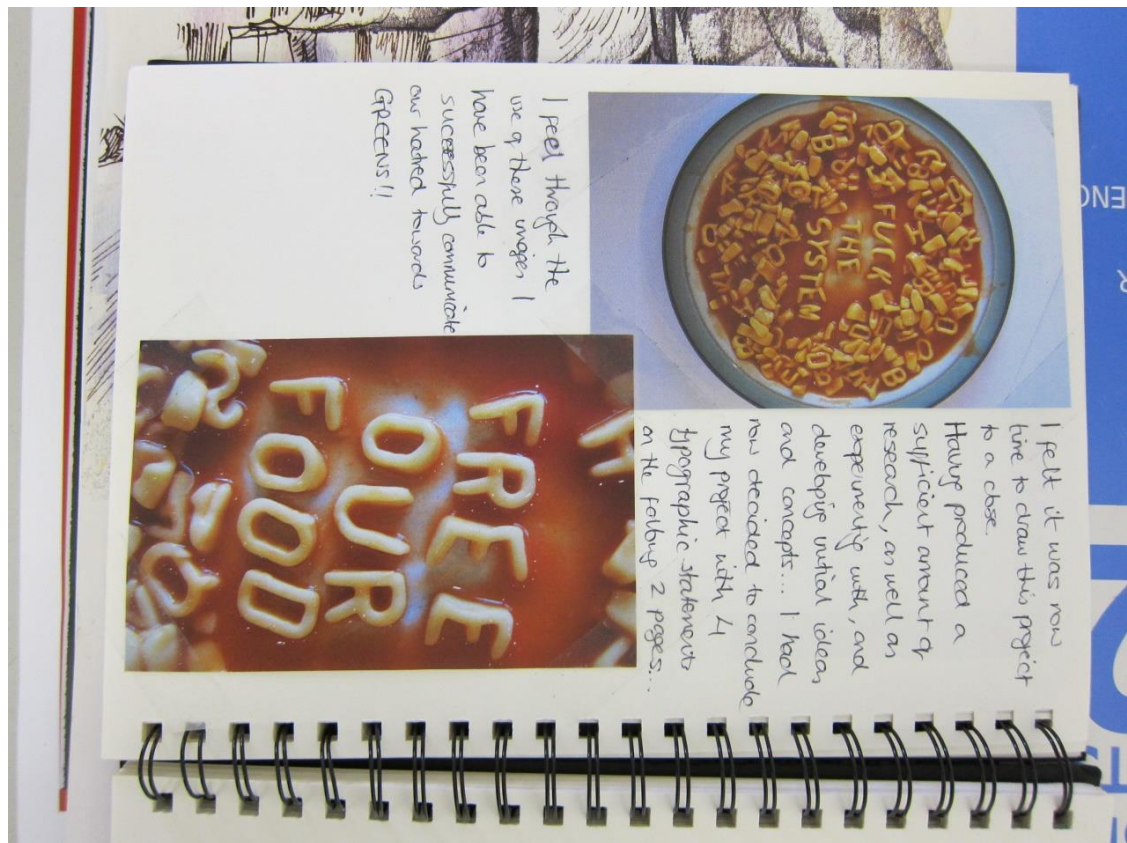 FUCK
THE
SYSTEM
I felt it was now
time to draw this project
to a close.
Having produced a
sufficient amount of
research, as well as
experimenting with, and
developing initial ideas
and concepts... I had
now decided to conclude
my project with 4
typographic statements
on the follwing 2 pages...
I feel through the
use of these images I
have been able to
successfully communicate
our hatred towards
GREENS!!
FREE
OUR
FOOD